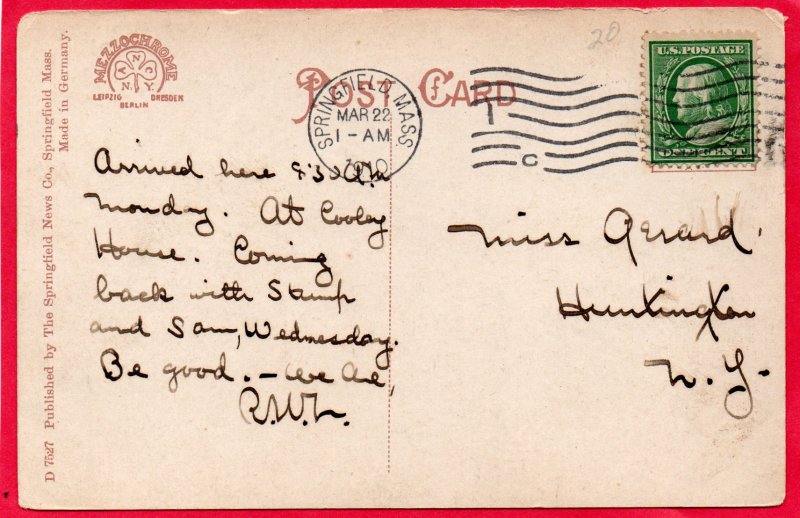 D 7527 Published by The Springfield News Co., Springfield Mass.
Made in Germany.
MEZZOCHROME
A N C
N.Y.
LEIPZIG DRESDEN
BERLIN
POST CARD
SPRINGFIELD MASS
MAR 22
1-AM
1910
C
20
U.S. POSTAGE
ONE CENT
Arrived here 8:30 A.M
Monday. At Cooley
House. Coming
back with Stump
and Sam, Wednesday.
Be good. - We are,
R.W.L.
Miss Gerard.
Huntington
N.Y-